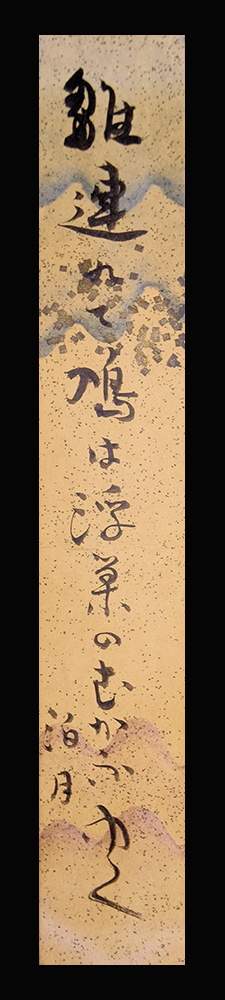 雛連れて鳰は浮巣のむかふゆく
泊月